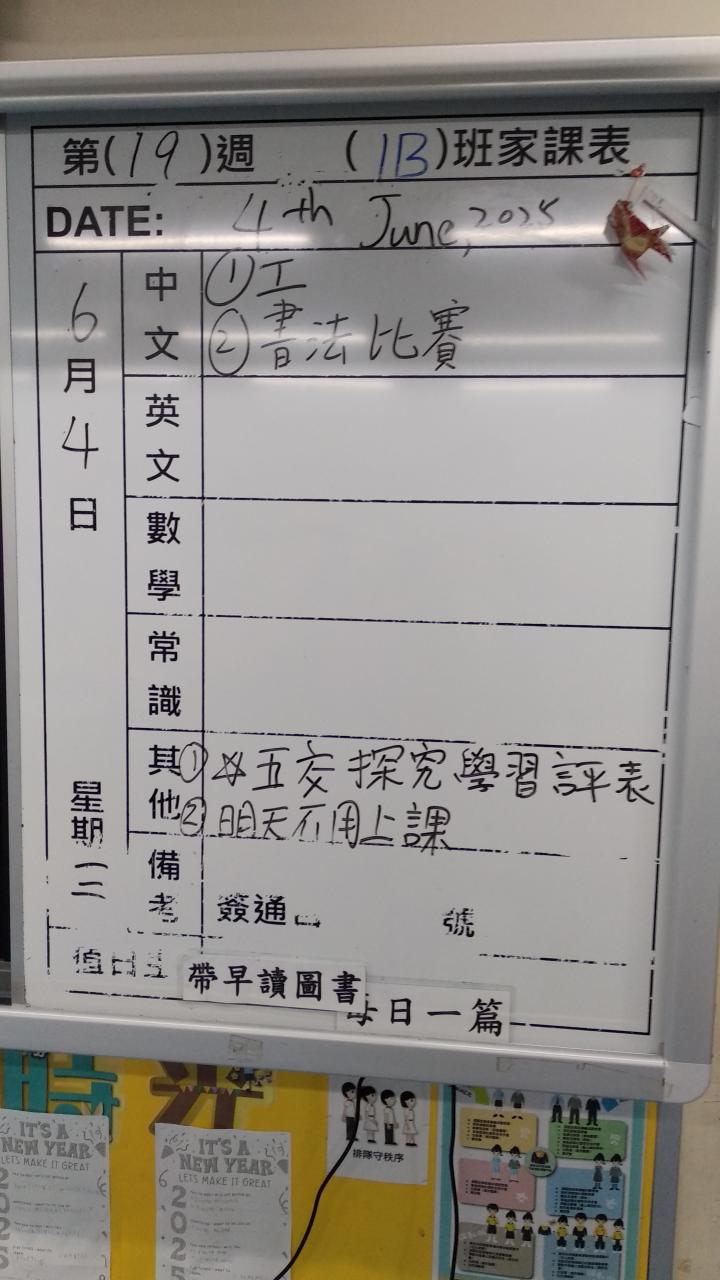 第(19)週 (1B)班家課表
DATE: 4th June, 2025
6月4日
星期三
中文
①工
②書法比賽
英文
數學
常識
其他
①☆五交探究學習評表
②明天不用上課
備考
簽通 號
值日
帶早讀圖書
每日一篇
IT'S A
NEW YEAR
LETS MAKE IT GREAT
2025
IT'S A
NEW YEAR
LETS MAKE IT GREAT
2025
排隊守秩序